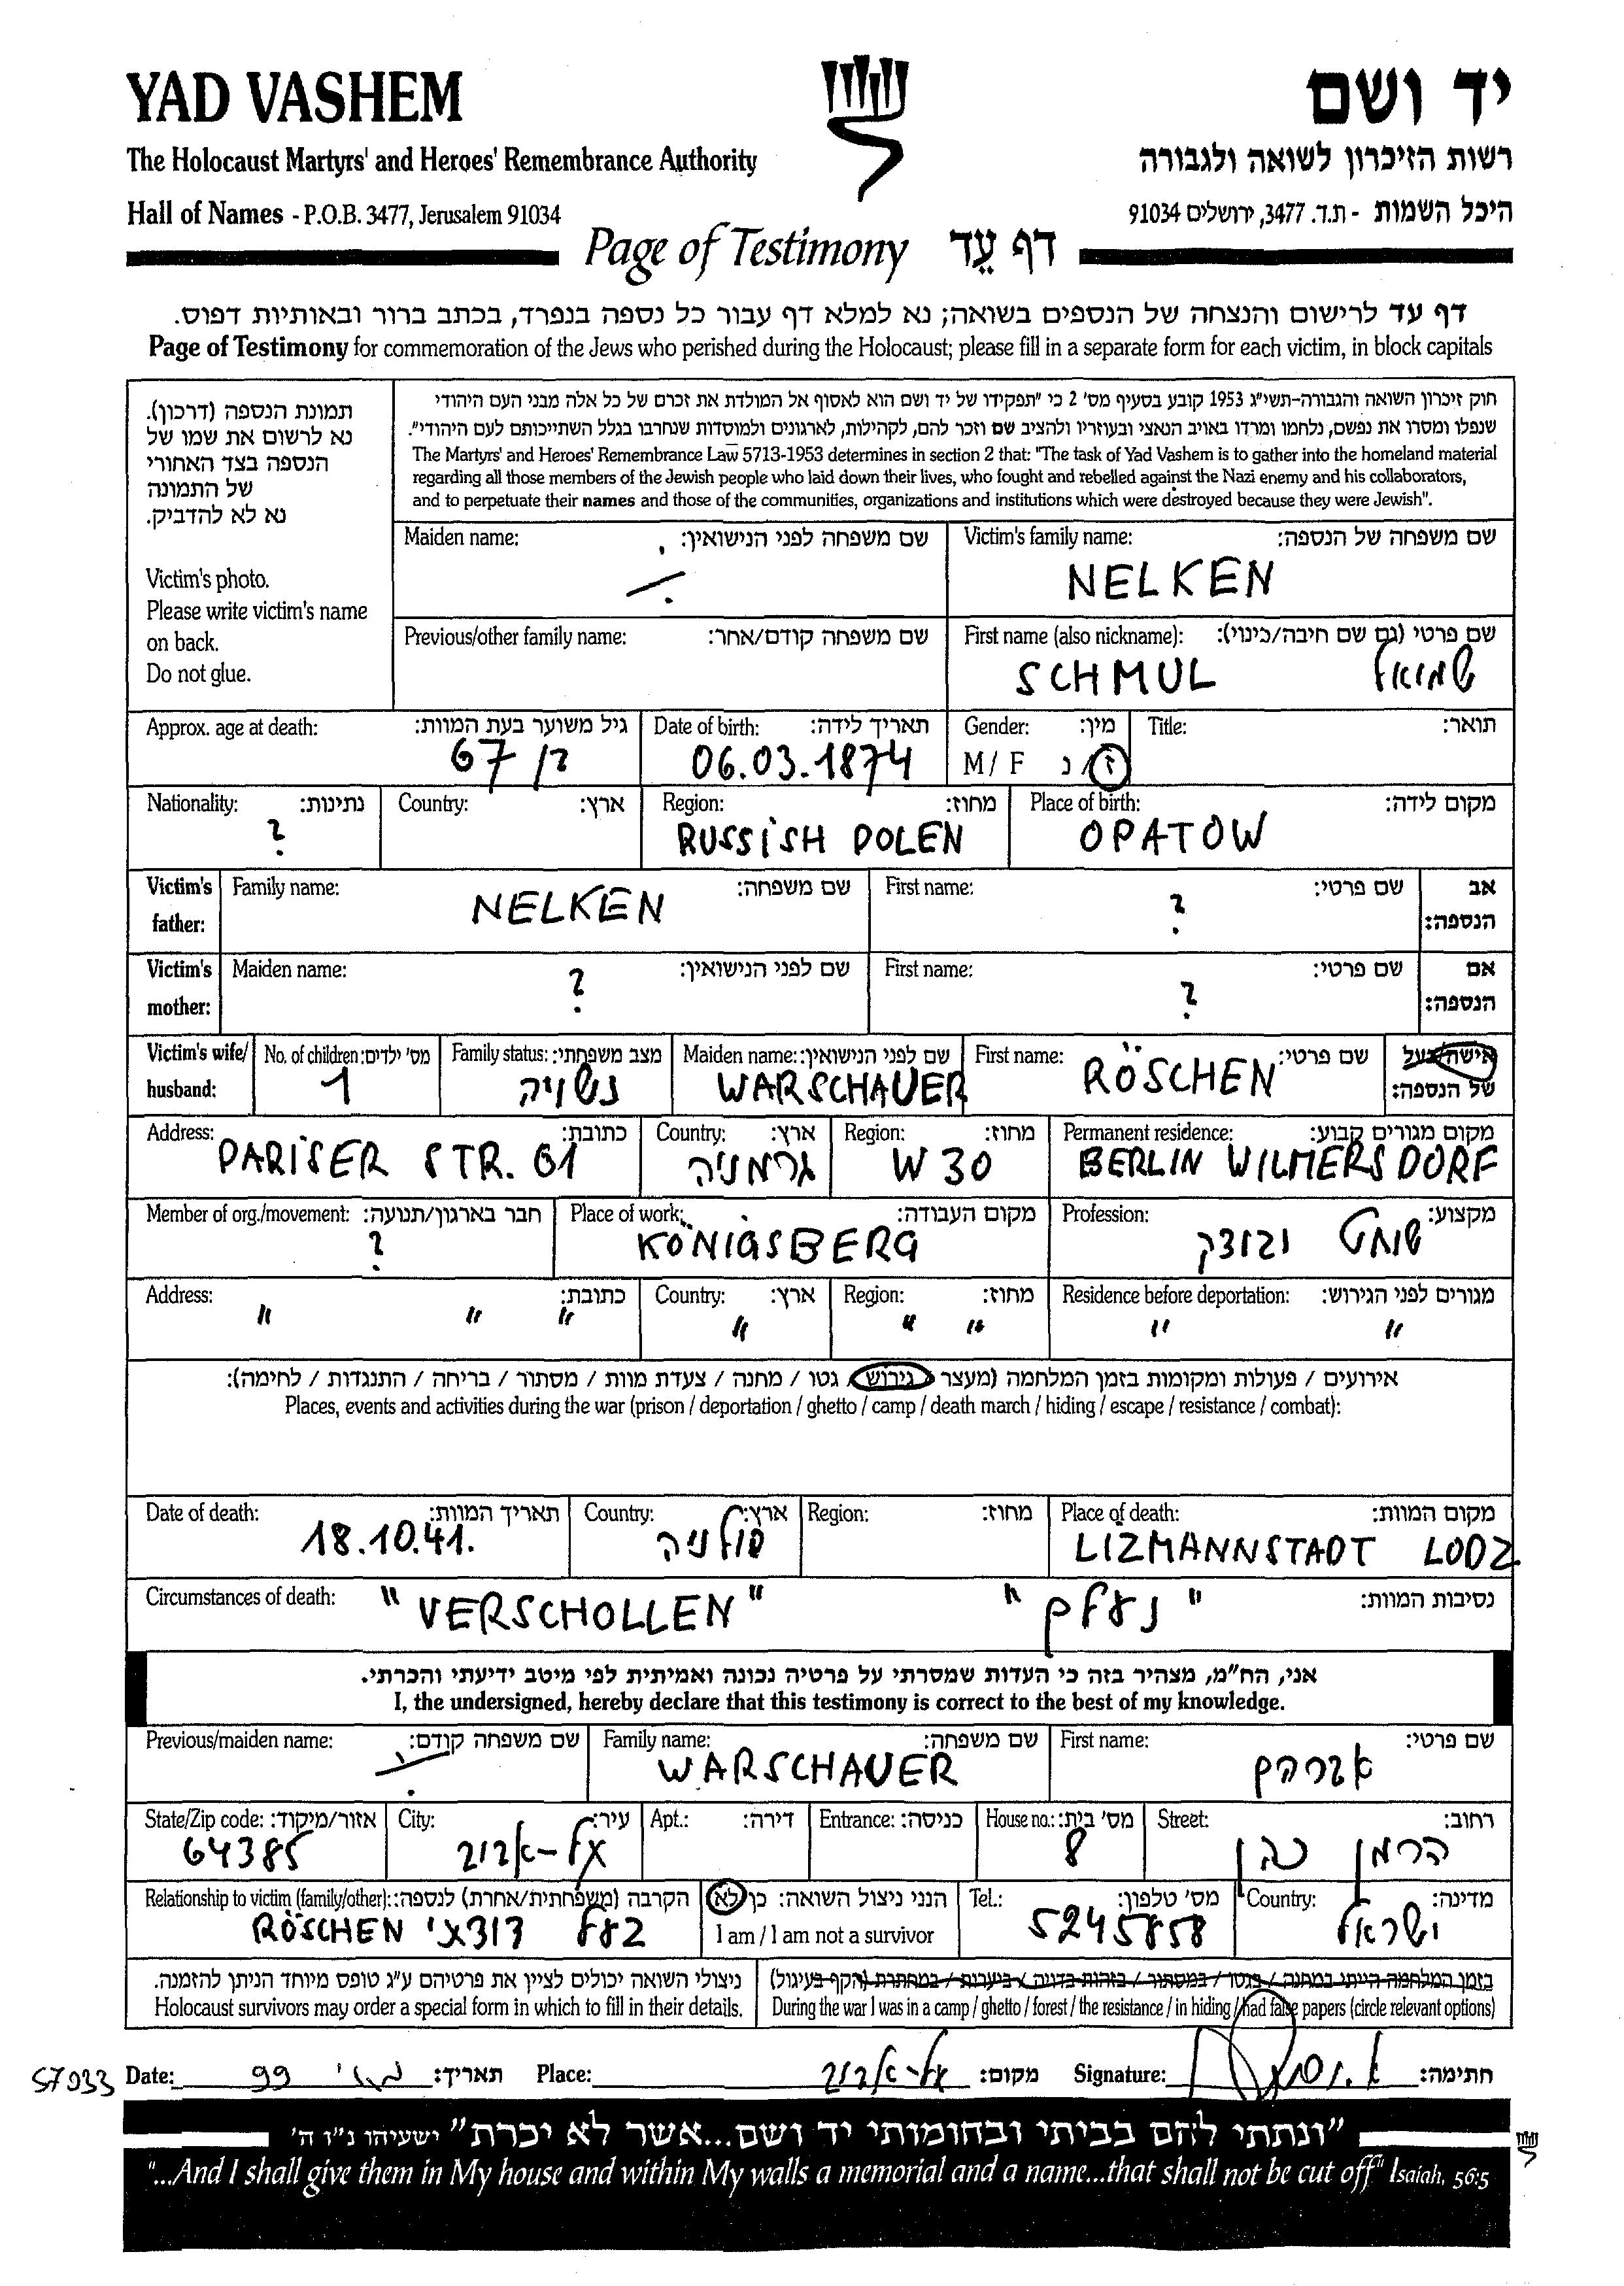 YAD VASHEM
יד ושם
The Holocaust Martyrs' and Heroes' Remembrance Authority
רשות הזיכרון לשואה ולגבורה
Hall of Names - P.O.B. 3477, Jerusalem 91034
היכל השמות - ת.ד. 3477, ירושלים 91034
Page of Testimony דף עֵד
דף עד לרישום והנצחה של הנספים בשואה; נא למלא דף עבור כל נספה בנפרד, בכתב ברור ובאותיות דפוס.
Page of Testimony for commemoration of the Jews who perished during the Holocaust; please fill in a separate form for each victim, in block capitals
תמונת הנספה (דרכון).
נא לרשום את שמו של
הנספה בצד האחורי
של התמונה
נא לא להדביק.
Victim's photo.
Please write victim's name
on back.
Do not glue.
חוק זיכרון השואה והגבורה-תשי"ג 1953 קובע בסעיף מס' 2 כי "תפקידו של יד ושם הוא לאסוף אל המולדת את זכרם של כל אלה מבני העם היהודי
שנפלו ומסרו את נפשם, נלחמו ומרדו באויב הנאצי ובעוזריו ולהציב שם וזכר להם, לקהילות, לארגונים ולמוסדות שנחרבו בגלל השתייכותם לעם היהודי".
The Martyrs' and Heroes' Remembrance Law 5713-1953 determines in section 2 that: "The task of Yad Vashem is to gather into the homeland material
regarding all those members of the Jewish people who laid down their lives, who fought and rebelled against the Nazi enemy and his collaborators,
and to perpetuate their names and those of the communities, organizations and institutions which were destroyed because they were Jewish".
Maiden name: שם משפחה לפני הנישואין:
Victim's family name: שם משפחה של הנספה:
NELKEN
Previous/other family name: שם משפחה קודם/אחר:
First name (also nickname): שם פרטי (גם שם חיבה/כינוי):
SCHMUL שמואל
Approx. age at death: גיל משוער בעת המוות:
67 בן
Date of birth: תאריך לידה:
06.03.1874
Gender: מין:
M / F ז/נ
Title: תואר:
Nationality: נתינות:
?
Country: ארץ:
Region: מחוז:
RUSSISH POLEN
Place of birth: מקום לידה:
OPATOW
Victim's father:
Family name: שם משפחה:
NELKEN
First name: שם פרטי:
?
אב הנספה:
Victim's mother:
Maiden name: שם לפני הנישואין:
?
First name: שם פרטי:
?
אם הנספה:
Victim's wife/ husband:
No. of children: מס' ילדים:
1
Family status: מצב משפחתי:
נשוי
Maiden name: שם לפני הנישואין:
WARSCHAUER
First name: שם פרטי:
RÖSCHEN
אישה/בעל של הנספה:
Address: כתובת:
PARISER STR. 61
Country: ארץ:
גרמניה
Region: מחוז:
W 30
Permanent residence: מקום מגורים קבוע:
BERLIN WILMERSDORF
Member of org./movement: חבר בארגון/תנועה:
?
Place of work: מקום העבודה:
KÖNIGSBERG
Profession: מקצוע:
שוחט ובודק
Address: כתובת:
" " "
Country: ארץ:
"
Region: מחוז:
" "
Residence before deportation: מגורים לפני הגירוש:
" "
אירועים / פעולות ומקומות בזמן המלחמה (מעצר / גירוש / גטו / מחנה / צעדת מוות / מסתור / בריחה / התנגדות / לחימה):
Places, events and activities during the war (prison / deportation / ghetto / camp / death march / hiding / escape / resistance / combat):
Date of death: תאריך המוות:
18.10.41.
Country: ארץ:
פולניה
Region: מחוז:
Place of death: מקום המוות:
LIZMANNSTADT LODZ.
Circumstances of death: "VERSCHOLLEN" "נעלם" נסיבות המוות:
אני, הח"מ, מצהיר בזה כי העדות שמסרתי על פרטיה נכונה ואמיתית לפי מיטב ידיעתי והכרתי.
I, the undersigned, hereby declare that this testimony is correct to the best of my knowledge.
Previous/maiden name: שם משפחה קודם:
Family name: שם משפחה:
WARSCHAUER
First name: שם פרטי:
אברהם
State/Zip code: אזור/מיקוד:
64385
City: עיר:
תל-אביב
Apt.: דירה:
Entrance: כניסה:
House no.: מס' בית:
8
Street: רחוב:
הרמן כהן
Relationship to victim (family/other): הקרבה (משפחתית/אחרת) לנספה:
בעל דודתי RÖSCHEN
הנני ניצול השואה: כן / לא
I am / I am not a survivor
Tel.: מס' טלפון:
5245858
Country: מדינה:
ישראל
ניצולי השואה יכולים לציין את פרטיהם ע"ג טופס מיוחד הניתן להזמנה.
Holocaust survivors may order a special form in which to fill in their details.
בזמן המלחמה הייתי במחנה / בגטו / במסתור / בזהות בדויה / ביערות / במחתרת (הקף בעיגול)
During the war I was in a camp / ghetto / forest / the resistance / in hiding / had false papers (circle relevant options)
57033
Date: 99 מאי תאריך: Place: תל-אביב מקום: Signature: חתימה:
"ונתתי להם בביתי ובחומותי יד ושם...אשר לא יכרת" ישעיהו נ"ו ה'
"...And I shall give them in My house and within My walls a memorial and a name...that shall not be cut off" Isaiah, 56:5